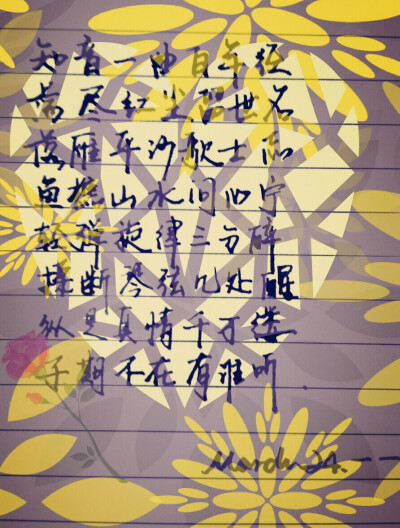 知音一曲百年经
荡尽红尘留世名
落雁平沙歌士志
鱼樵山水问心宁
轻弹旋律三分醉
揉断琴弦几处醒
纵是真情千万缕
子期不在有谁听.
March 24.